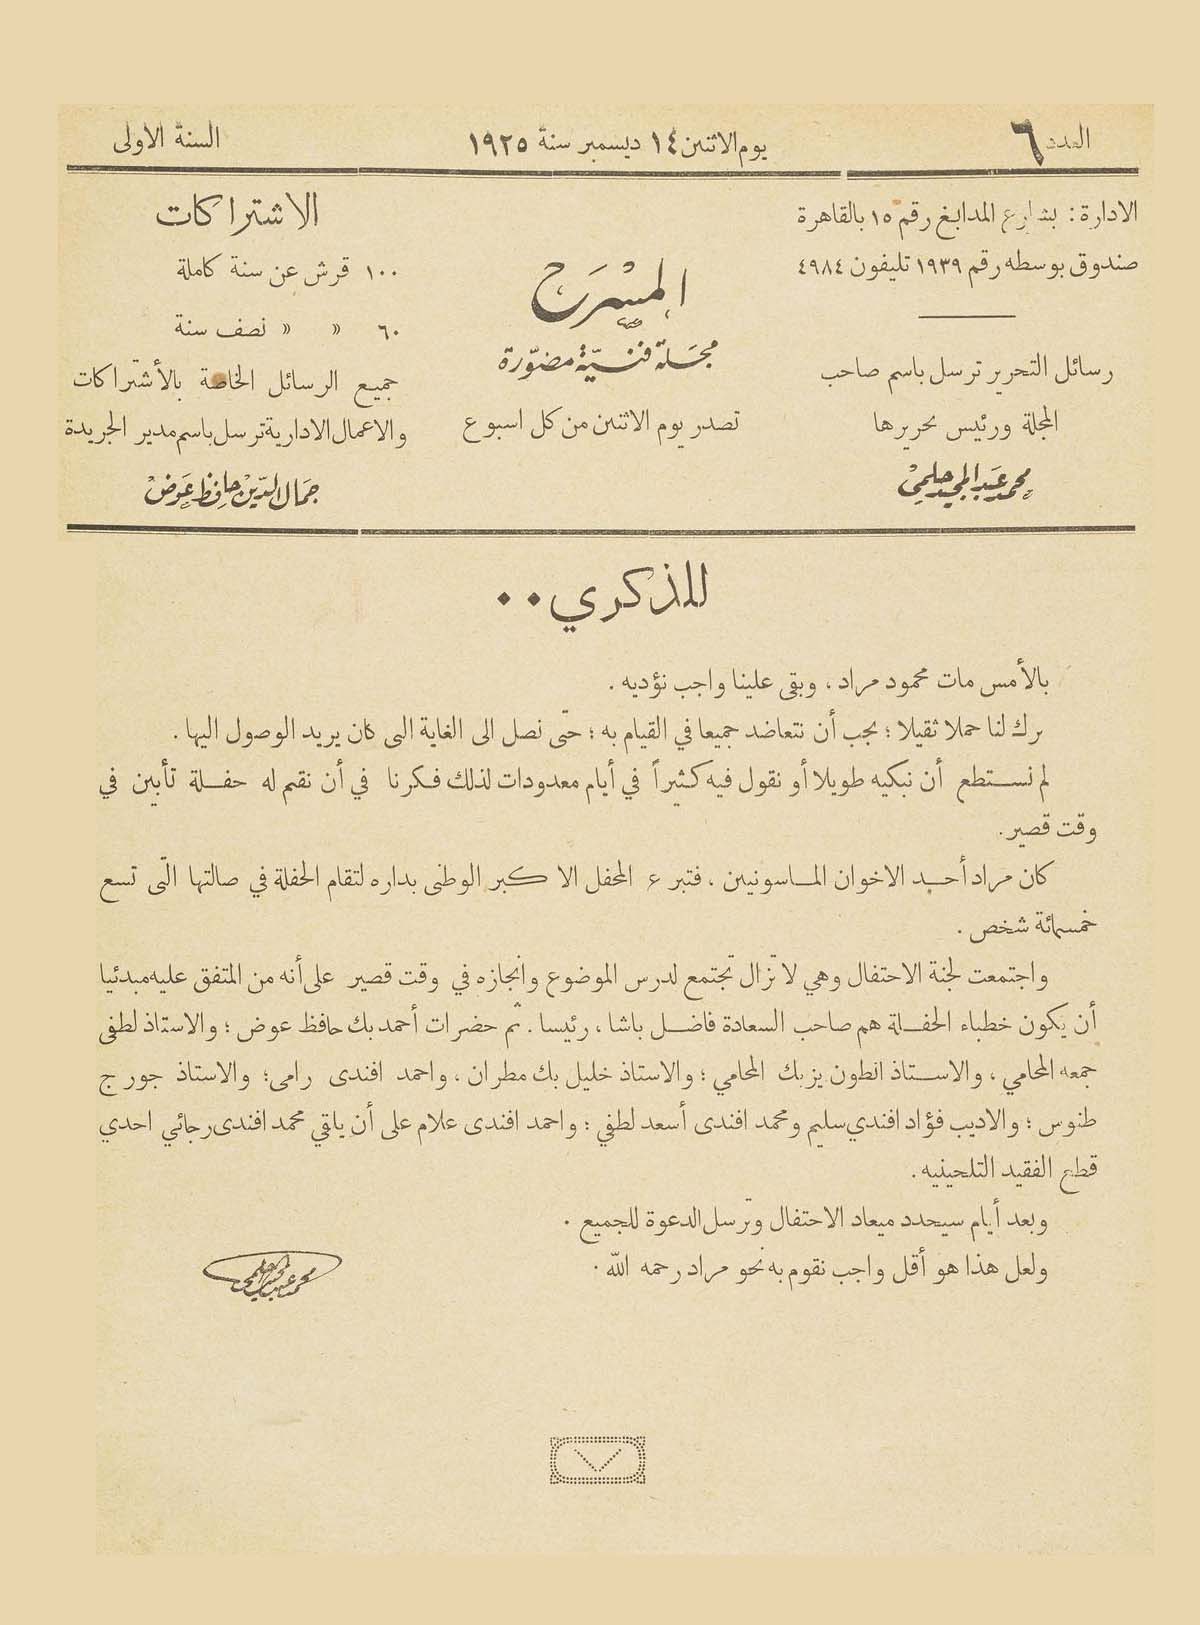 العدد ٦
يوم الاثنين ١٤ ديسمبر سنة ١٩٢٥
السنة الاولى
الادارة : بشارع المدابغ رقم ١٥ بالقاهرة
صندوق بوسطه رقم ١٩٣٩ تليفون ٤٩٨٤
رسائل التحرير ترسل باسم صاحب
المجلة ورئيس تحريرها
محمد عبد المجيد حلمي
المسرح
مجلة فنية مصورة
تصدر يوم الاثنين من كل اسبوع
الاشتراكات
١٠٠ قرش عن سنة كاملة
٦٠ » » نصف سنة
جميع الرسائل الخاصة بالأشتراكات
والاعمال الادارية ترسل باسم مدير الجريدة
جمال الدين حافظ عوض
للذكري ..
بالأمس مات محمود مراد ، وبقى علينا واجب نؤديه .
ترك لنا حملا ثقيلا ؛ يجب أن نتعاضد جميعا في القيام به ؛ حتى نصل الى الغاية التى كان يريد الوصول اليها .
لم نستطع أن نبكيه طويلا أو نقول فيه كثيراً في أيام معدودات لذلك فكرنا في أن نقيم له حفلة تأبين في
وقت قصير .
كان مراد أحد الاخوان الماسونيين ، فتبرع المحفل الاكبر الوطنى بداره لتقام الحفلة في صالتها التى تسع
خمسمائة شخص .
واجتمعت لجنة الاحتفال وهي لا تزال تجتمع لدرس الموضوع وانجازه في وقت قصير على أنه من المتفق عليه مبدئيا
أن يكون خطباء الحفلة هم صاحب السعادة فاضل باشا ، رئيسا . ثم حضرات أحمد بك حافظ عوض ؛ والاستاذ لطفى
جمعه المحامي ، والاستاذ انطون يزبك المحامي ؛ والاستاذ خليل بك مطران ، واحمد افندى رامى ؛ والاستاذ جورج
طنوس ؛ والاديب فؤاد افندي سليم ومحمد افندى أسعد لطفي ؛ واحمد افندى علام على أن يلقي محمد افندى رجائي احدي
قطع الفقيد التلحينيه .
وبعد أيام سيحدد ميعاد الاحتفال وترسل الدعوة للجميع .
ولعل هذا هو أقل واجب نقوم به نحو مراد رحمه الله .
محمد عبد المجيد حلمي